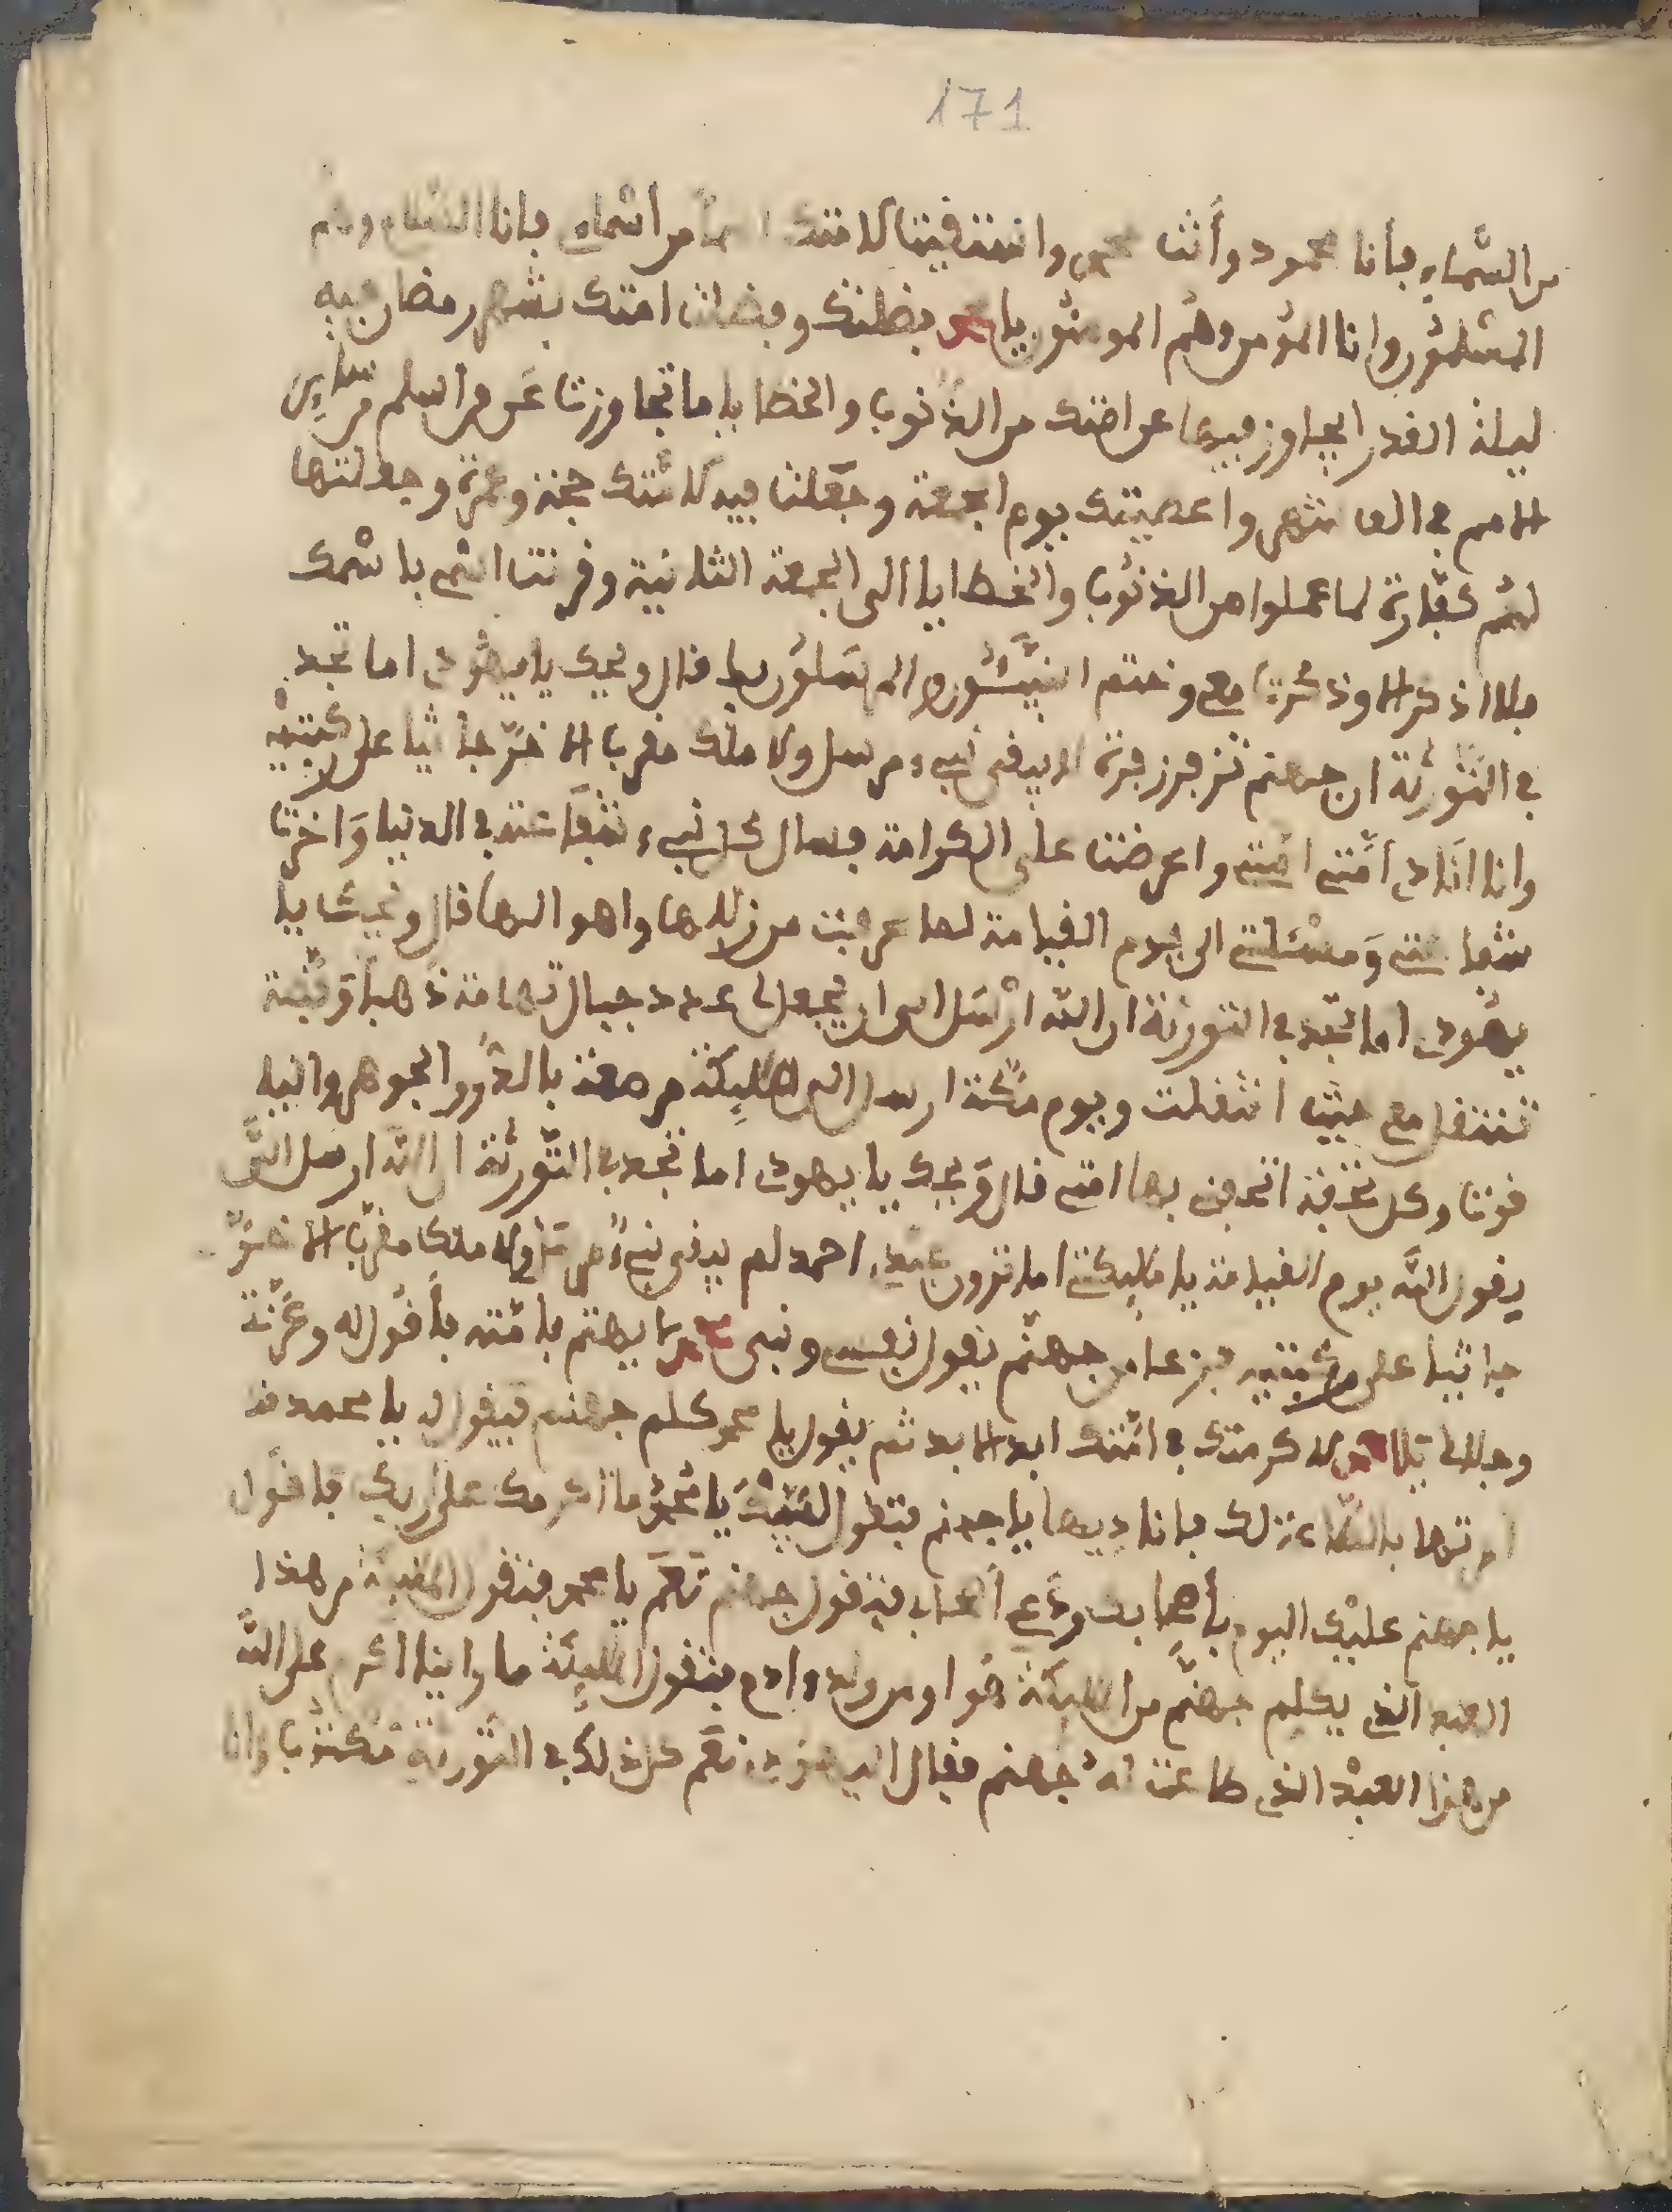 171
من السماء فأنا محمود وأنت محمد واشتقيت لامتك اسما من اسماي فانا السلام وهم
المسلمون وانا المؤمن وهم المومنون يا محمد فضلتك وفضلت امتك بشهر رمضان فيه
ليلة القدر اتجاوز فيها عن امتك من الذنوب والخطايا ما تجاوزت عن من اسلم من ساير
الامم في الف شهر واعطيتك يوم الجمعة وجعلت فيه لامتك حجة وعمرة وجعلتها
لهم كفارة لما عملوا من الذنوب والخطايا الى الجمعة الثانية وقرنت اسمي باسمك
فلا اذكر الا وذكرت معي وختم النبيئون والمرسلون بك قال ويحك يا يهودي اما تجد
في التورية ان جهنم تزفر زفرة لا يبقى نبيء مرسل ولا ملك مقرب الا خر جاثيا على ركبتيه
وانا انادي امتي امتي واعرضت علي الكرامة فسال كل نبيء شفاعته في الدنيا واخرت
شفاعتي ومسئلتي الى يوم القيامة لما عرفت من زللها واهوالها قال ويحك يا
يهودي اما تجد في التورية ان الله ارسل الي ان يجعل لي عدد جبال تهامة ذهبا وفضة
تنتقل معي حيث انتقلت ويوم مكة ارسل الي المليكة مرصعة بالدر والجوهر واليا
قوت وكل تحفة اتحف بها امتي قال ويحك يا يهودي اما تجد في التورية ان الله ارسل الي
يقول الله يوم القيامة يا مليكتي اما ترون عبدي احمد لم يبق نبيء مرسل ولا ملكا مقرب الا خر
جاثيا على ركبتيه فزعا من جهنم يقول نفسي ونبيي محمد يهتم بامته فأقول له وعزتي
وجلالي يا محمد لاكرمتك في امتك ابد الابد ثم يقول يا محمد كلم جهنم فيقول له يا محمد قد
امرتها بالطاعة لك فاناديها يا جهنم فتقول لبيك يا محمد ما اكرمك على ربك فاقول
يا جهنم عليك اليوم باصحابك ودع اصحابي فتقول جهنم نعم يا محمد فتقول المليكة من هذا
العبد الذي يكلم جهنم من المليكة هو او من ولد ءادم فتقول المليكة ما راينا اكرم على الله
من هذا العبد الذي طاعت له جهنم فقال اليهودي نعم كل ذلك في التورية مكتوب وان